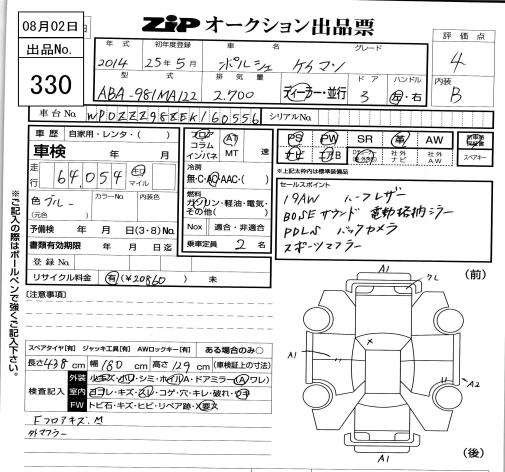 08月02日
出品No.
330
ZIP オークション出品票
評価点
4
内装
B
年式 初年度登録 車名 グレード
2014 25年5月 ポルシェ ケイマン
型式 排気量 ドア ハンドル
ABA-981MA122 2.700 ディーラー・並行 3 左・右
車台No. WP0ZZZ98ZEK160556 シリアルNo.
車歴 自家用・レンタ・( )
車検 年 月
走行 64,054 キロ マイル
色 ブルー カラーNo. 内装色
(元色)
予備検 年 月 日(3・8)No.
書類有効期限 年 月 日迄
登録No.
リサイクル料金 有(¥20860) 未
シフト
フロア
コラム
インパネ
AT
MT 速
冷房
無・C・AC・AAC・( )
燃料
ガソリン・軽油・電気・
その他( )
Nox 適合・非適合
乗車定員 2 名
PS PW SR 革 AW
ナビ エアB 社外ナビ 社外AW
スペアキー
※上記太枠内は標準装備品
セールスポイント
19AW ハーフレザー
BOSEサウンド 電動格納ミラー
PDLS バックカメラ
スポーツマフラー
※ご記入の際はボールペンで強くご記入下さい。
[注意事項]
スペアタイヤ[有] ジャッキ工具[有] AWロックキー[有] ある場合のみ○
長さ 438 cm 幅 180 cm 高さ 129 cm (車検証上の寸法)
検査記入
外装 小キズ・小凹・シミ・ホイルA・ドアミラー(A ワレ)
室内 ヨゴレ・キズ・スレ・コゲ・穴・キレ・破れ・ウキ
FW トビ石・キズ・ヒビ・リペア跡・X要交
Fフロアキズ.M
外マフラー
(前)
A1
A1
A2
A1
(後)